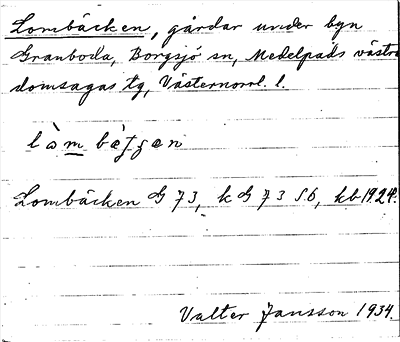 Lombäcken, gårdar under byn
Granboda, Borgsjö sn, Medelpads västra
domsagas tg, Västernorrl. l.
Lombäcken G 73, k G 73 S6, kb 1924.
Valter Jansson 1934.